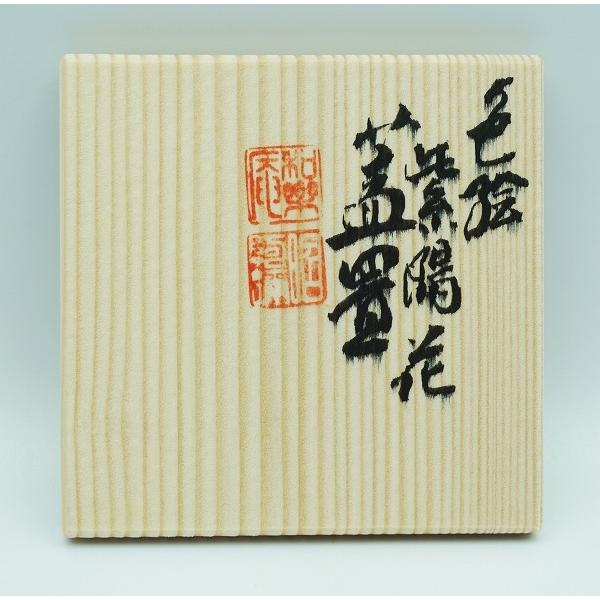 色絵
紫陽花
蓋置